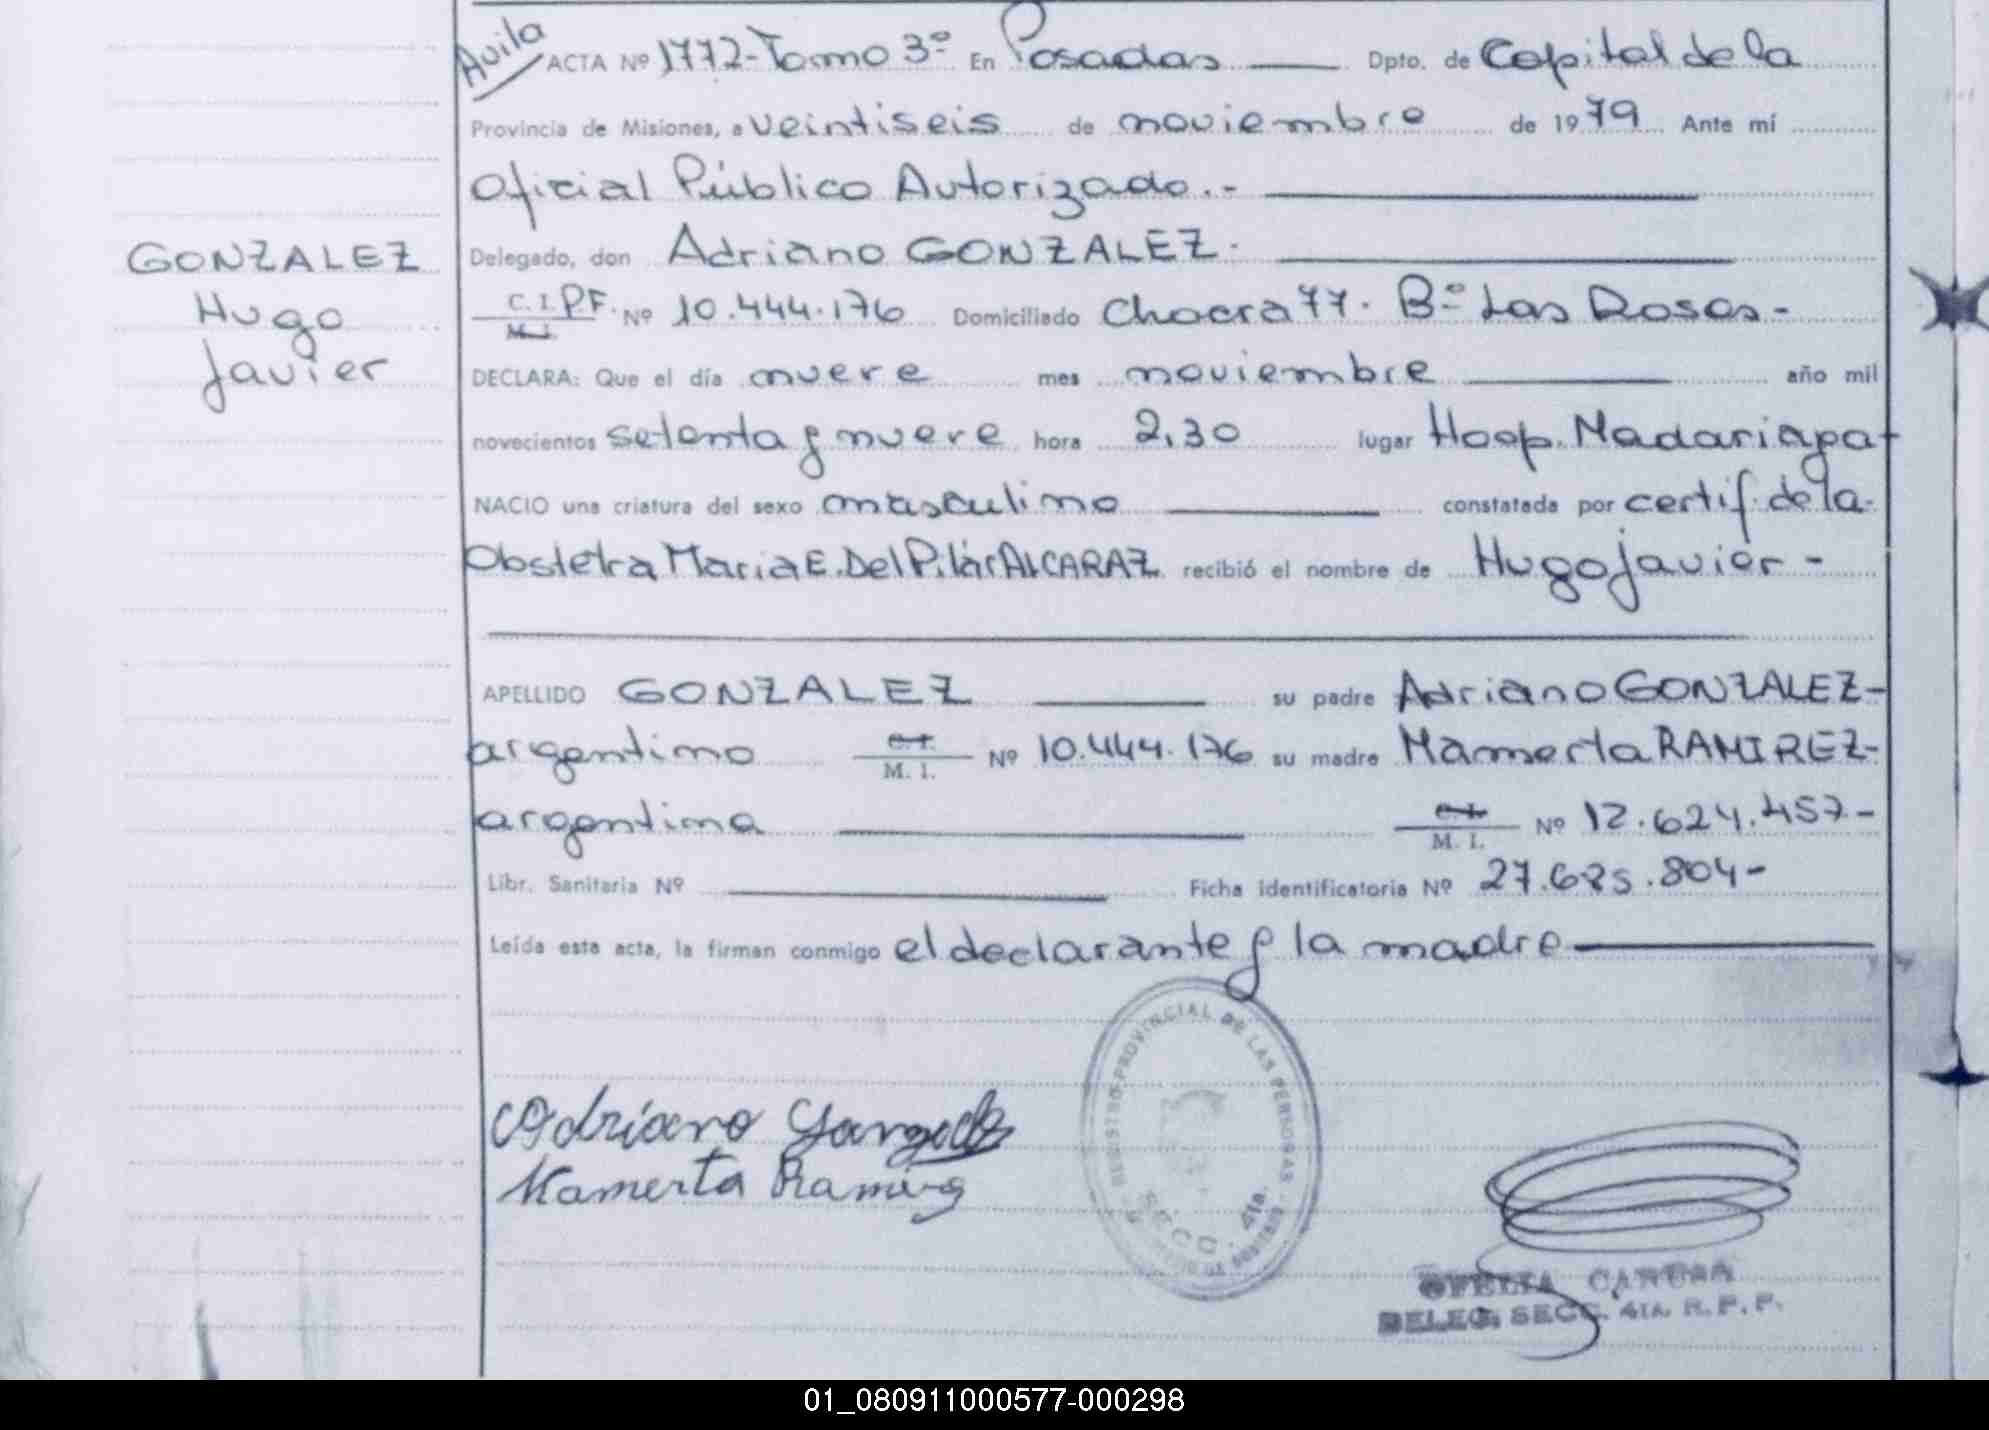 Avila ACTA Nº 1772-Tomo 3º En Posadas Dpto. de Capital de la
Provincia de Misiones, a veintiseis de noviembre de 1979 Ante mí
Oficial Público Autorizado.-
GONZALEZ
Hugo
Javier
Delegado, don Adriano GONZALEZ.
C. I. P.F. Nº 10.444.176 Domiciliado Chacra 77. Bº Las Rosas-
M.I.
DECLARA: Que el día nueve mes noviembre año mil
novecientos setenta y nueve hora 2,30 lugar Hosp. Madariaga
NACIO una criatura del sexo masculino constatada por certif. de la
Obstetra Maria E. Del Pilar ALCARAZ recibió el nombre de Hugo Javier -
APELLIDO GONZALEZ su padre Adriano GONZALEZ-
argentino C.I. M. I. Nº 10.444.176 su madre Mamerta RAMIREZ-
argentina C.I. M. I. Nº 12.624.457-
Libr. Sanitaria Nº Ficha Identificatoria Nº 27.685.804-
Leída esta acta, la firman conmigo el declarante y la madre
Adriano Gonzalez
Mamerta Ramirez
REGISTRO PROVINCIAL DE LAS PERSONAS
SECC. 4ta.
OFELIA CARUSA
DELEG. SECC. 4ta. R. P. P.
01_080911000577-000298